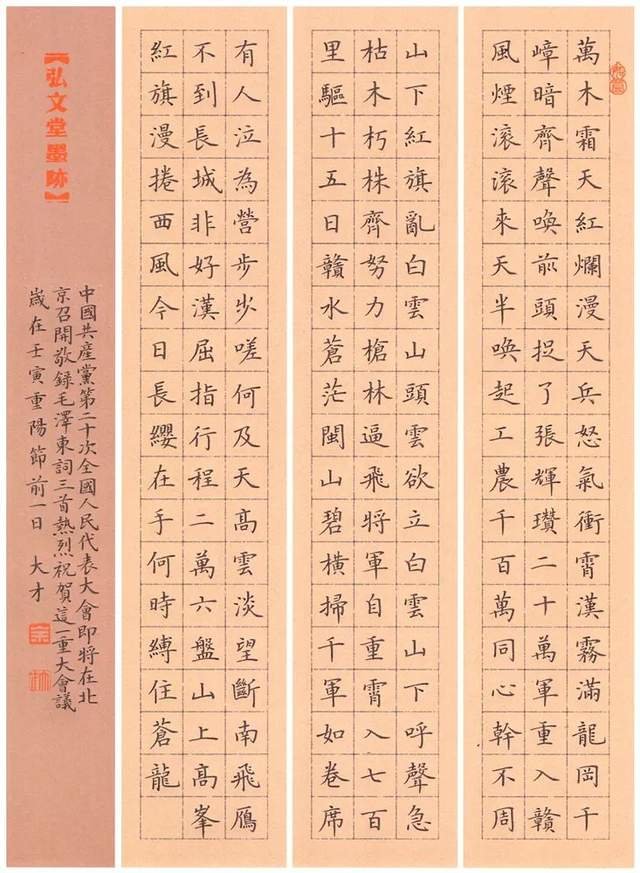 萬木霜天紅爛漫天兵怒氣衝霄漢霧滿龍岡千
嶂暗齊聲喚前頭捉了張輝瓚二十萬軍重入贛
風煙滾滾來天半喚起工農千百萬同心幹不周
山下紅旗亂白雲山頭雲欲立白雲山下呼聲急
枯木朽株齊努力槍林逼飛將軍自重霄入七百
里驅十五日贛水蒼茫閩山碧橫掃千軍如卷席
有人泣為營步步嗟何及天高雲淡望斷南飛鴈
不到長城非好漢屈指行程二萬六盤山上高峯
紅旗漫捲西風今日長纓在手何時縛住蒼龍
【弘文堂墨跡】
中國共產黨第二十次全國人民代表大會即將在北
京召開敬錄毛澤東詞三首熱烈祝賀這一重大會議
歲在壬寅重陽節前一日 大才